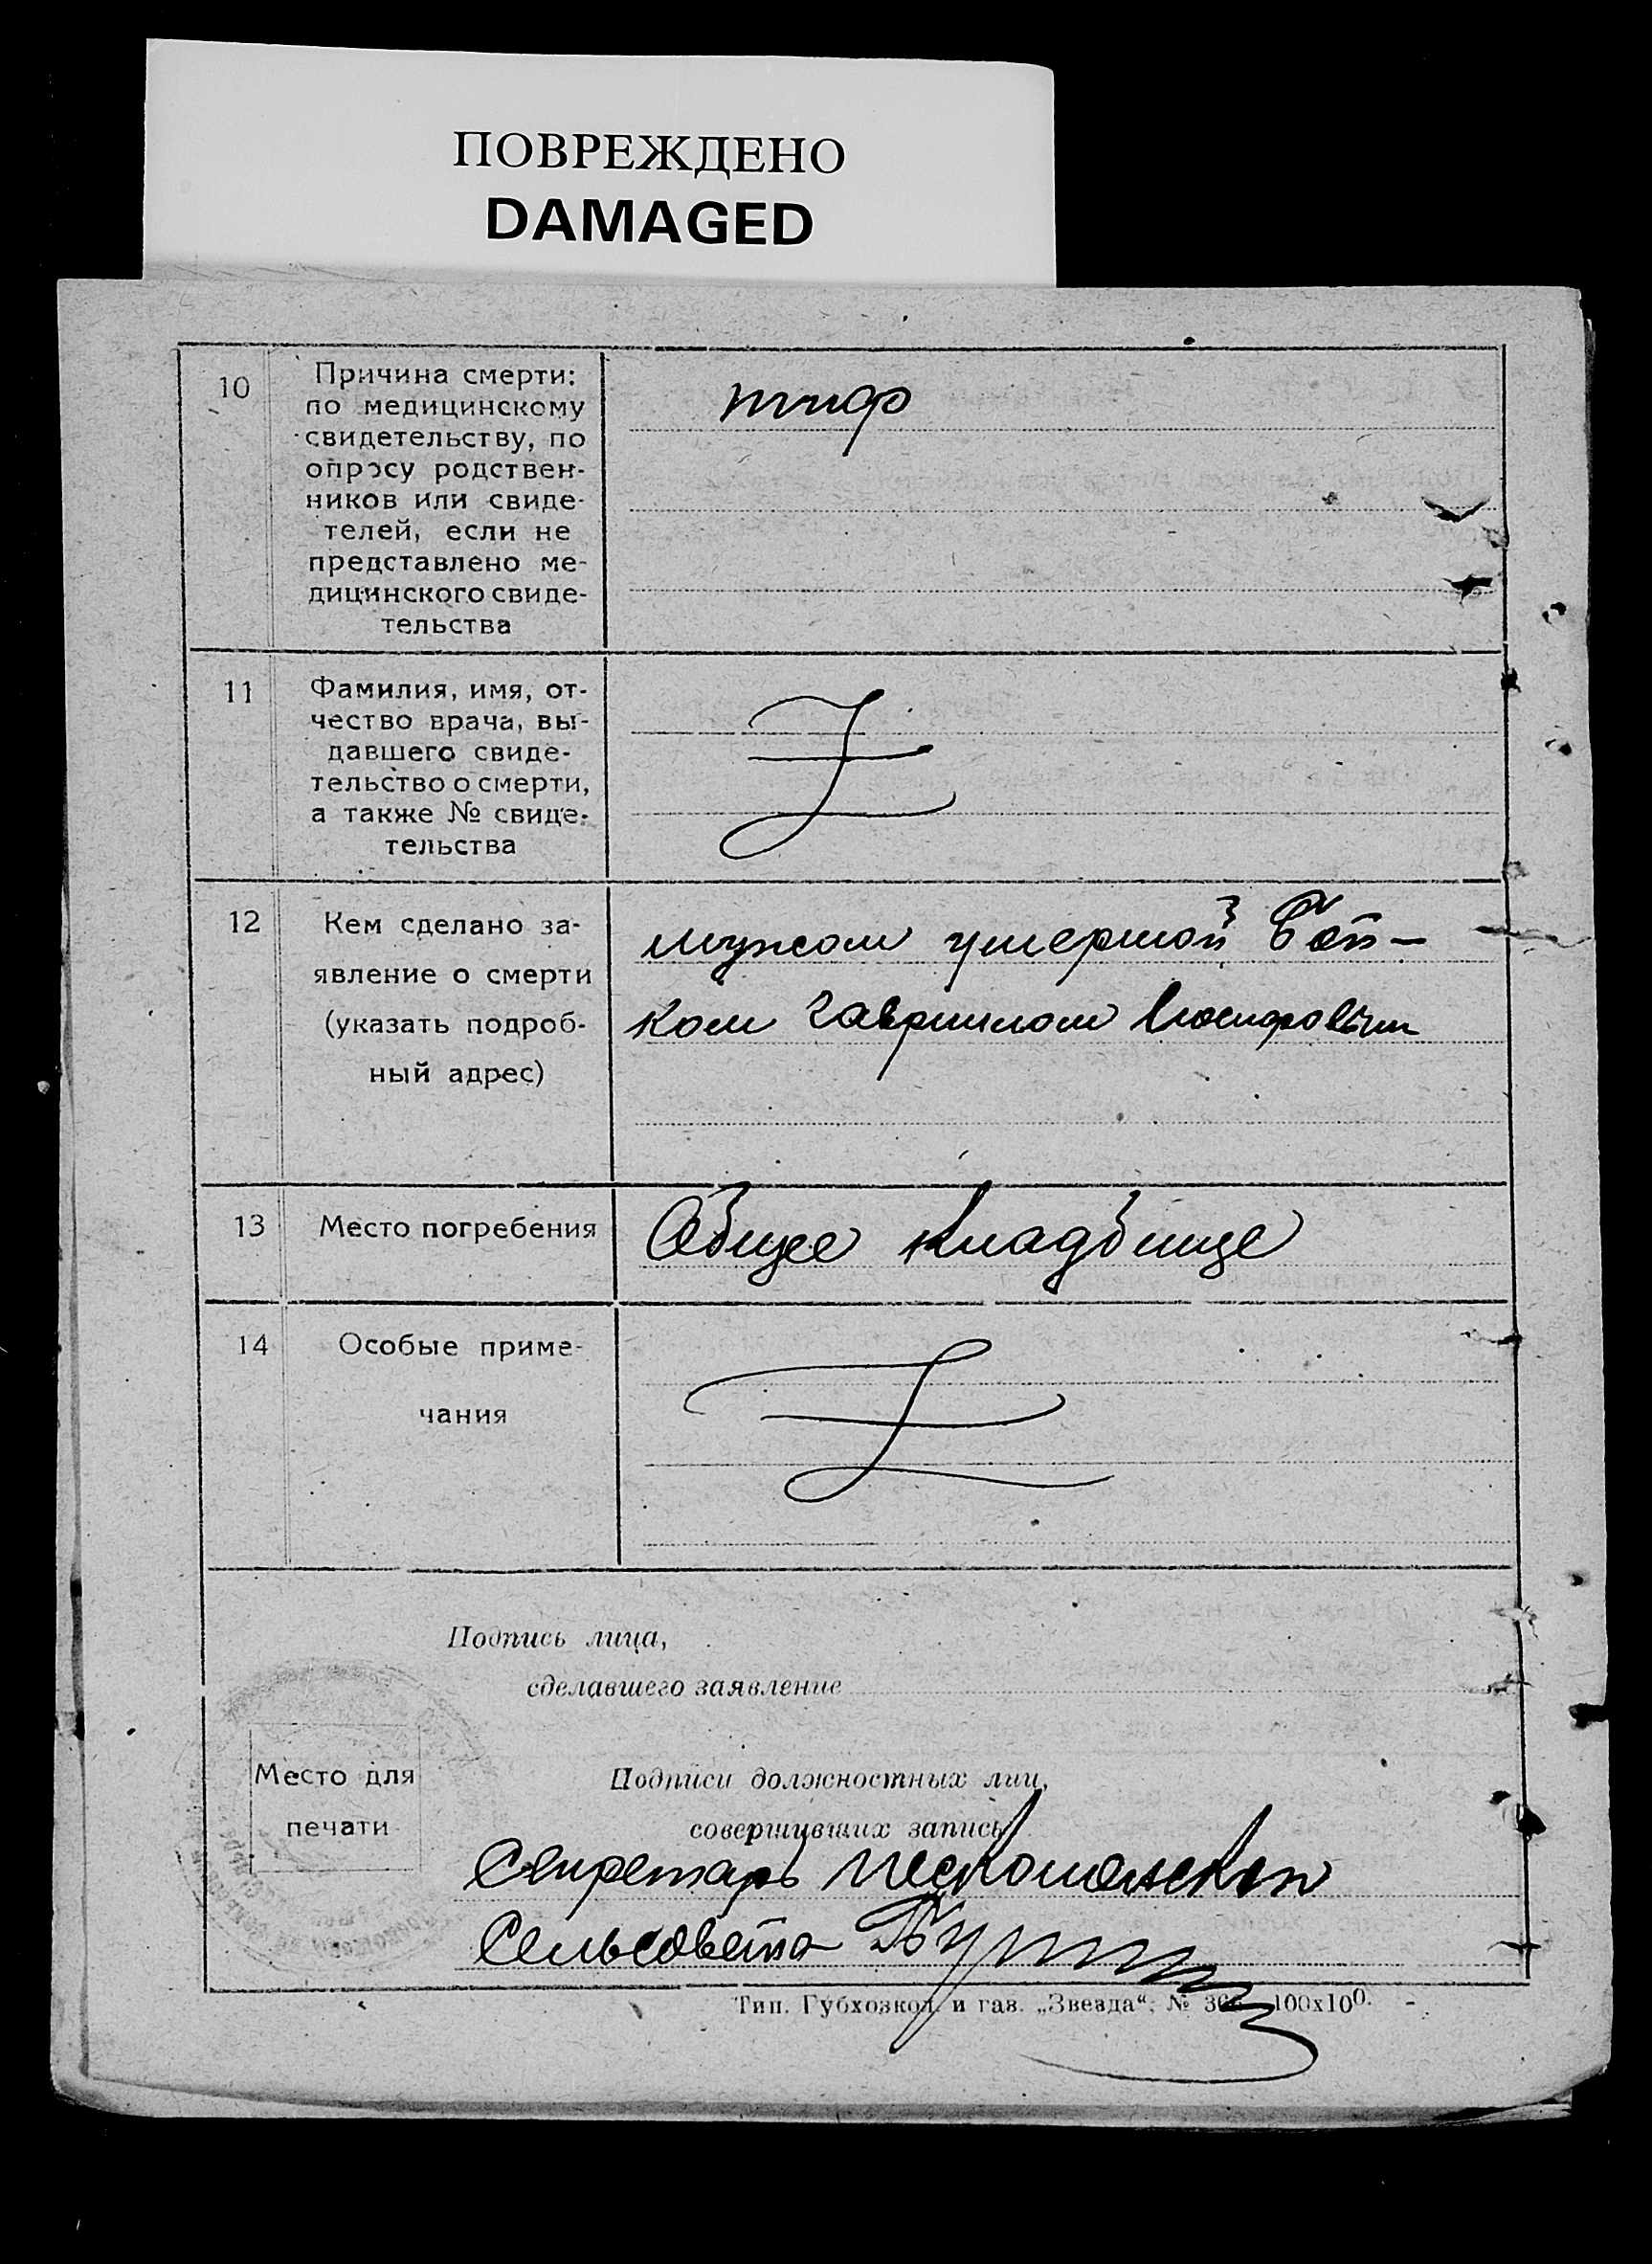 ПОВРЕЖДЕНО
DAMAGED
10
Причина смерти:
по медицинскому
свидетельству, по
опросу родствен-
ников или свиде-
телей, если не
представлено ме-
дицинского свиде-
тельства
тиф
11
Фамилия, имя, от-
чество врача, вы-
давшего свиде-
тельство о смерти,
а также № свиде-
тельства
12
Кем сделано за-
явление о смерти
(указать подроб-
ный адрес)
мужом умершой Бот-
ком Гавриилом
13
Место погребения
Общее кладбище
14
Особые приме-
чания
Подпись лица,
сделавшего заявление
Место для
печати
Подписи должностных лиц,
совершивших запись
Секретарь
Сельсовета
Тип. Губхозкол. и газ. „Звезда“, № 100х100.